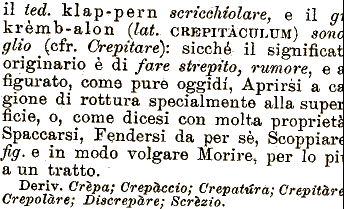 il ted. klap-pern scricchiolare, e il
krèmb-alon (lat. CREPITÀCULUM) sono
glio (cfr. Crepitare): sicché il significat
originario è di fare strepito, rumore, e
figurato, come pure oggidí, Aprirsi a ca
gione di rottura specialmente alla super
ficie, o, come dicesi con molta proprietà
Spaccarsi, Fendersi da per sè, Scoppiare
fig. e in modo volgare Morire, per lo pi
a un tratto.
Deriv. Crèpa; Crepàccio; Crepatúra; Crepitàre
Crepolàre; Discrepàre; Scrèzio.